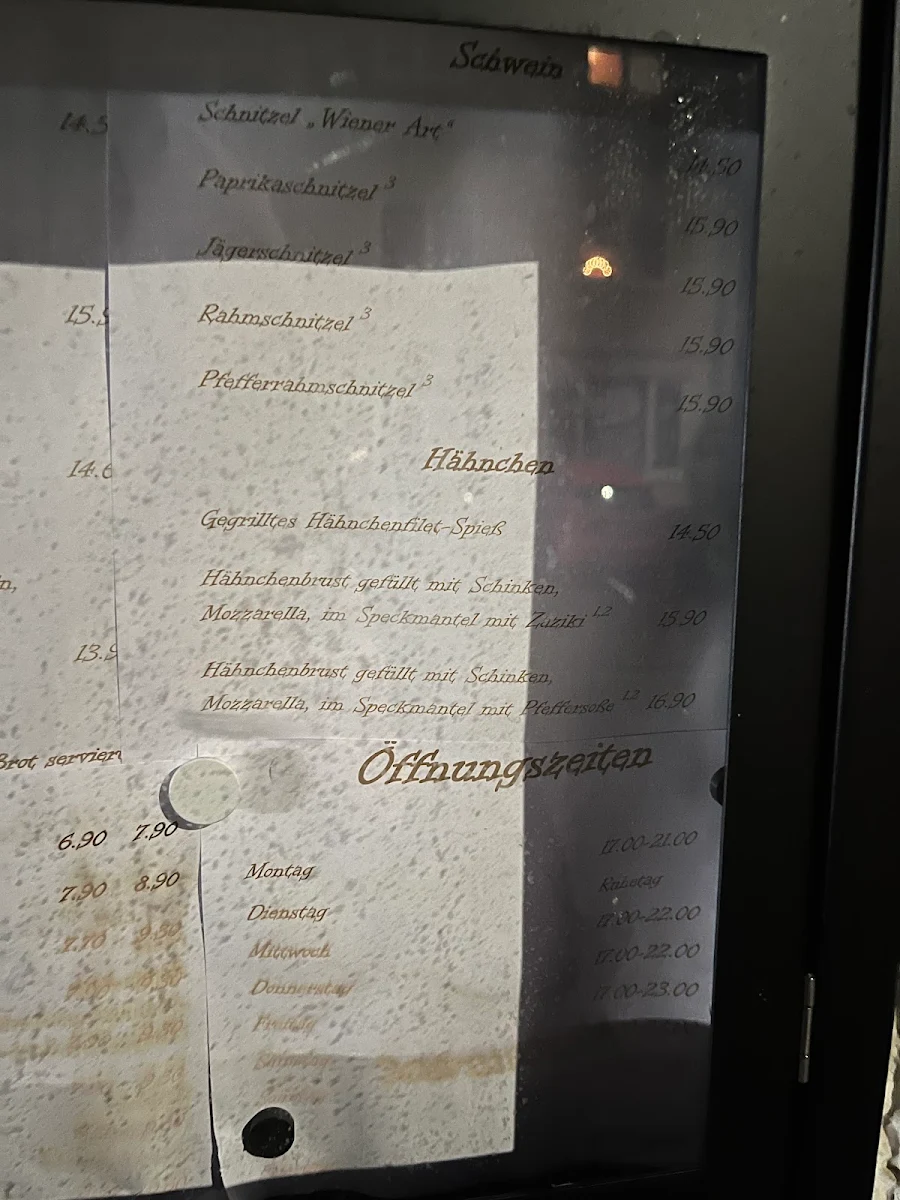 Schwein
Schnitzel „Wiener Art“ 14.50
Paprikaschnitzel 3 15.90
Jägerschnitzel 3 15.90
Rahmschnitzel 3 15.90
Pfefferrahmschnitzel 3 15.90
Hähnchen
Gegrilltes Hähnchenfilet-Spieß 14.50
Hähnchenbrust gefüllt mit Schinken,
Mozzarella, im Speckmantel mit Zaziki 1,2 15.90
Hähnchenbrust gefüllt mit Schinken,
Mozzarella, im Speckmantel mit Pfeffersoße 1,2 16.90
Öffnungszeiten
Montag 17.00-21.00
Dienstag Ruhetag
Mittwoch 17.00-22.00
Donnerstag 17.00-22.00
Freitag 17.00-23.00
Samstag
14.5
15.9
14.6
n,
13.9
Brot serviert
6.90 7.90
7.90 8.90
7.70 9.50